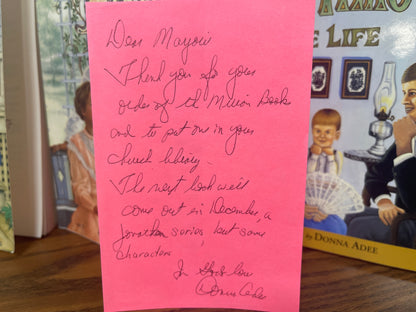 Dear Marjorie
Thank you for your
order of the Million Books
and to put one in your
Church library.
The next book will
come out in December, a
Jonathan series, but same
characters
In God's love
Donna Adee
E LIFE
by DONNA ADEE